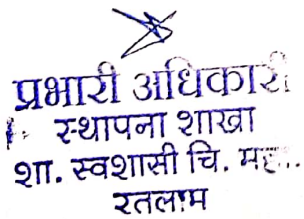 प्रभारी अधिकारी
स्थापना शाखा
शा. स्वशासी चि. मह...
रतलाम